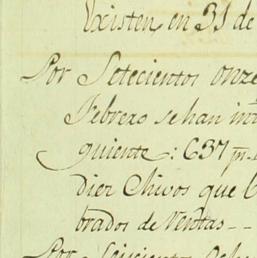 Existen en 31 de
Por Setecientos onze
Febrero se han int
guiente: 637 p.
dier Chivos que
brados de Ventas - -
Por Seiscientos